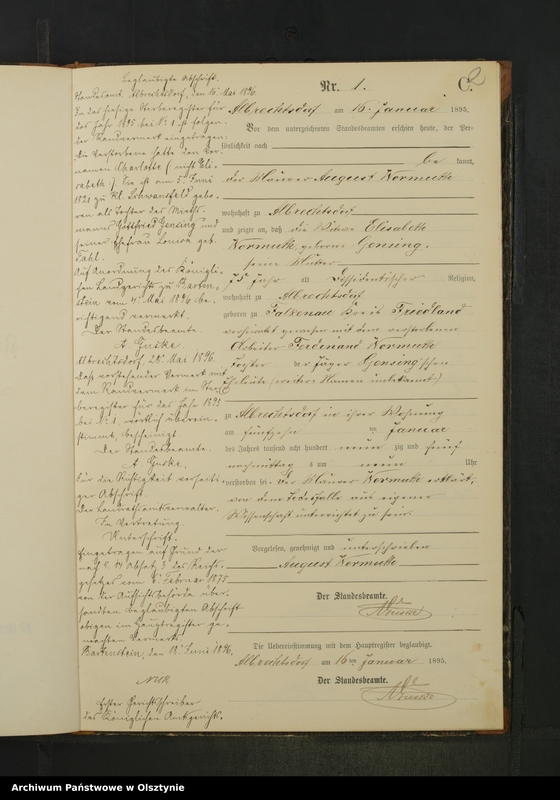 Beglaubigte Abschrift.
Standesamt Albrechtsdorf, den 15. Mai 1896.
In das hiesige Sterberegister für
das Jahr 1895 bei No 1 ist folgen-
der Randvermerk eingetragen:
Die Verstorbene hatte den Vor-
namen Charlotte (nicht Eli-
sabeth). Sie ist am 5. Juni
1821 zu Kl. Schwansfeld gebo-
ren als Tochter des
manns Gottfried Gensing und
seiner Ehefrau Louisa geb.
Fahl.
Auf Anordnung des Königli-
chen Landgerichts zu Barten-
stein vom 4. Mai 1896 be-
richtigend vermerkt.
Der Standesbeamte.
Albrechtsdorf, 28. Mai 1896.
Daß vorstehender Vermerk mit
dem Randvermerk im Ster-
beregister für das Jahr 1895
bei No 1, wörtlich überein-
stimmt, bescheinigt
Der Standesbeamte.
Für die Richtigkeit
ger Abschrift.
Der Landrathsamtsverwalter.
In Vertretung.
Unterschrift.
Eingetragen auf Grund der
nach § 14 Absatz 3 des Reichs-
gesetzes vom 6. Februar 1875
von der Aufsichtsbehörde über-
sandten beglaubigten Abschrift
obigen im Hauptregister ge-
machten Vermerks.
Bartenstein, den 18. Juni 1896.
Erster Gerichtsschreiber
des Königlichen Amtsgerichts.
Nr. 1.
C.
2
Albrechtsdorf am 16. Januar 1895.
Vor dem unterzeichneten Standesbeamten erschien heute, der Per-
sönlichkeit nach
be kannt,
der August Normuth
wohnhaft zu Albrechtsdorf
und zeigte an, daß die Witwe Elisabeth
Normuth, geborene Gensing.
seine Mutter
Jahr alt Dissidentischer Religion,
wohnhaft zu Albrechtsdorf
geboren zu Falkenau Kreis Friedland
verheirathet gewesen mit dem verstorbenen
Arbeiter Ferdinand Normuth
Tochter der Jäger Gensing'schen
Eheleute (weitere Namen unbekannt)
zu Albrechtsdorf in ihrer Wohnung
am fünfzehn ten Januar
des Jahres tausend acht hundert neun zig und fünf
nachmittag s um neun Uhr
verstorben sei. Der Normuth erklärt,
von dem Todesfalle aus eigener
Wissenschaft unterrichtet zu sein.
Vorgelesen, genehmigt und unterschrieben
August Normuth
Der Standesbeamte.
Die Uebereinstimmung mit dem Hauptregister beglaubigt.
Albrechtsdorf am 16ten Januar 1895.
Der Standesbeamte.
Archiwum Państwowe w Olsztynie